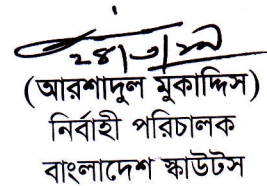 ২৪/৩/১৯
(আরশাদুল মুকাদ্দিস)
নির্বাহী পরিচালক
বাংলাদেশ স্কাউটস